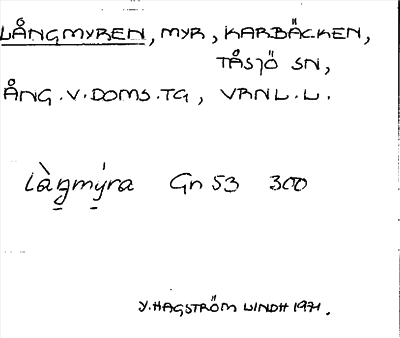 LÅNGMYREN, MYR, KARBÄCKEN,
TÅSJÖ SN,
ÅNG.V.DOMS.TG, VRNL.L.
làŋmýra Gn 53 300
Y. HAGSTRÖM LINDH 1971.